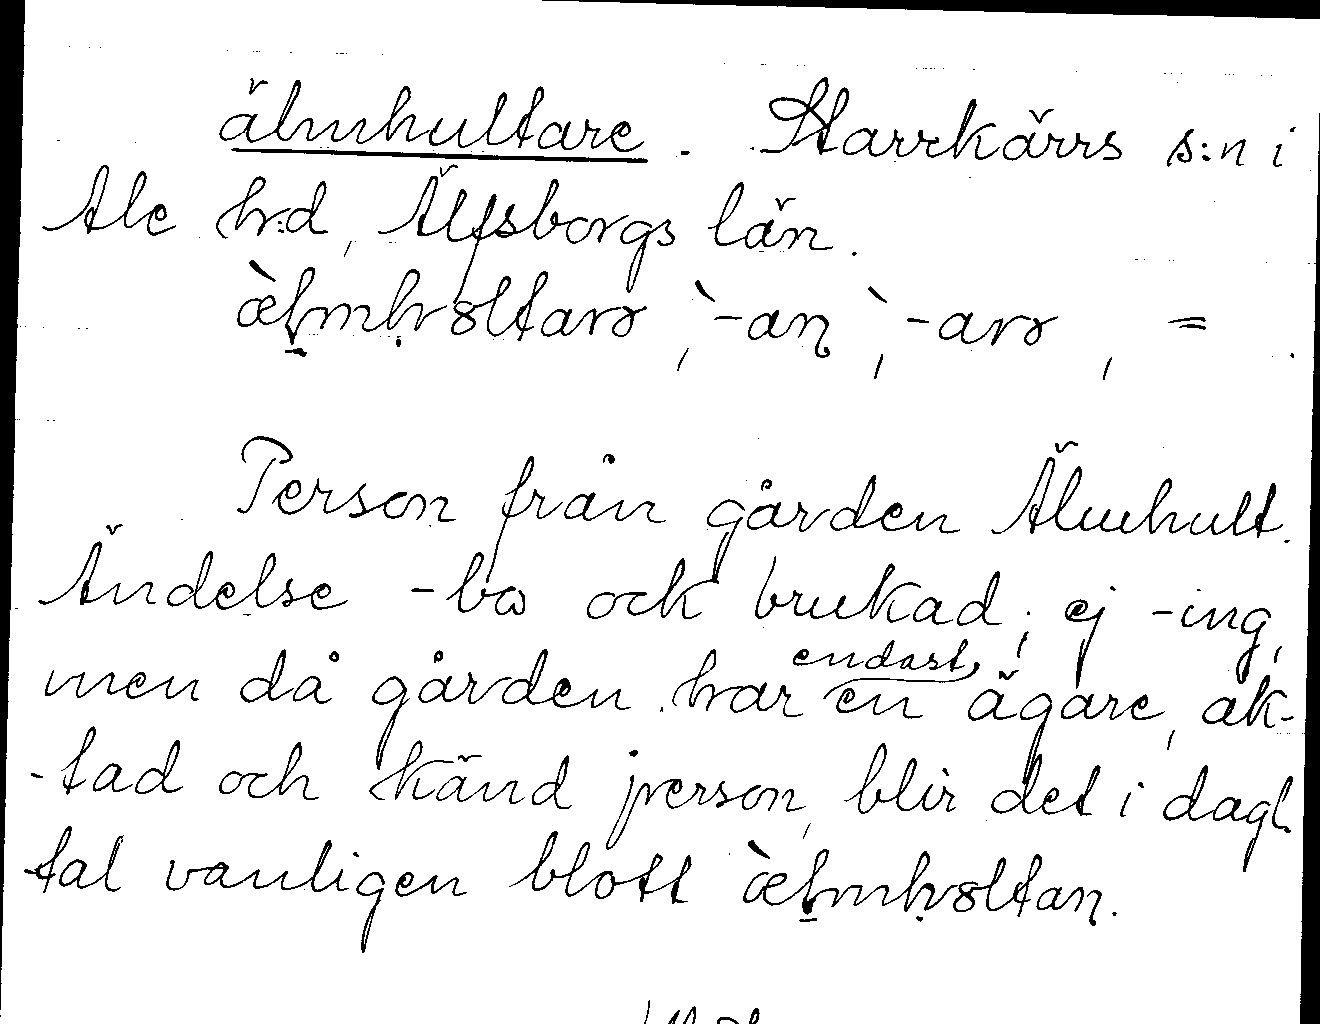 älmhultare. Starrkärrs s:n i
Ale h:d, Älfsborgs län.
-an, -arə, =
Person från gården Älmhult.
Ändelse -bo ock brukad; ej -ing,
men då gården har endast en ägare, ak-
-tad och känd person, blir det i dagl.
tal vanligen blott